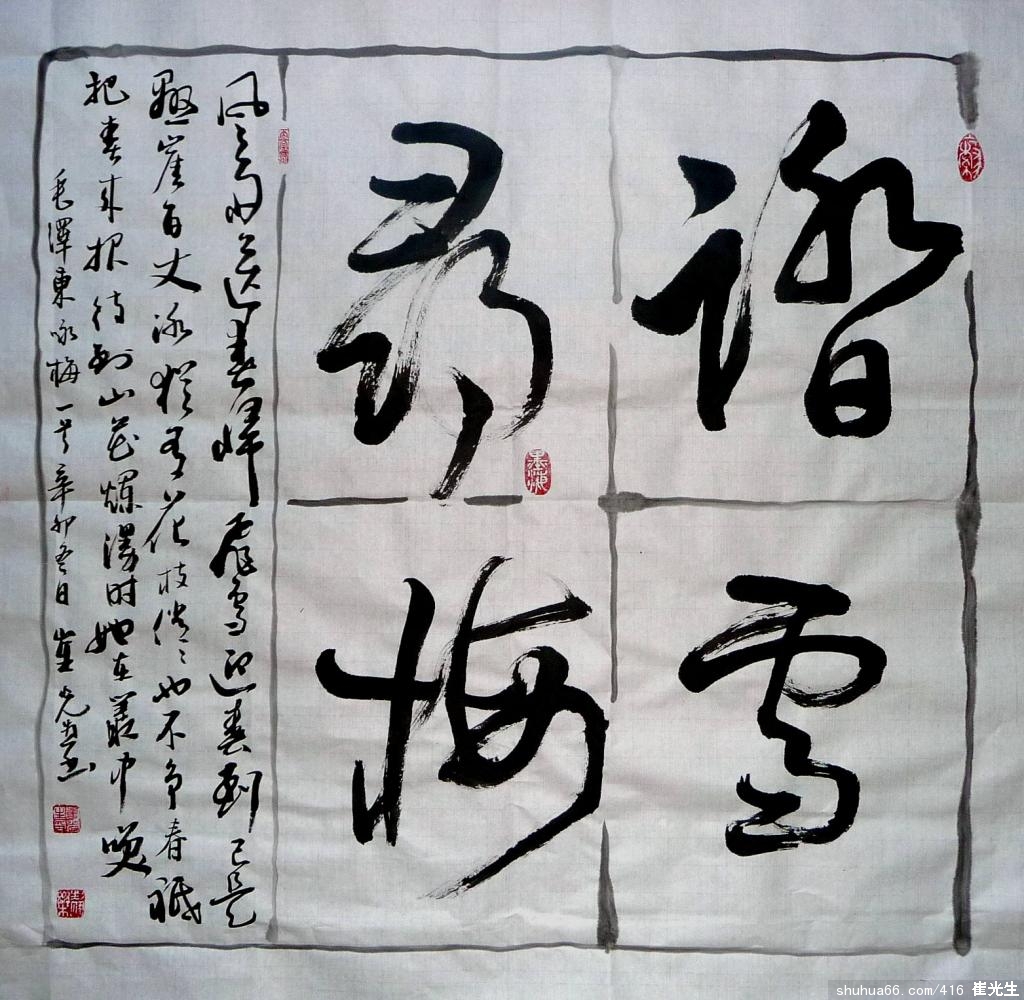 踏雪
尋梅
风雨送春歸飛雪迎春到已是
懸崖百丈冰犹有花枝俏〻也不争春祇
把春来报待到山花爛漫时她在叢中咲
毛澤東咏梅一首辛卯冬日崔光生书
shuhua66.com/416 崔光生